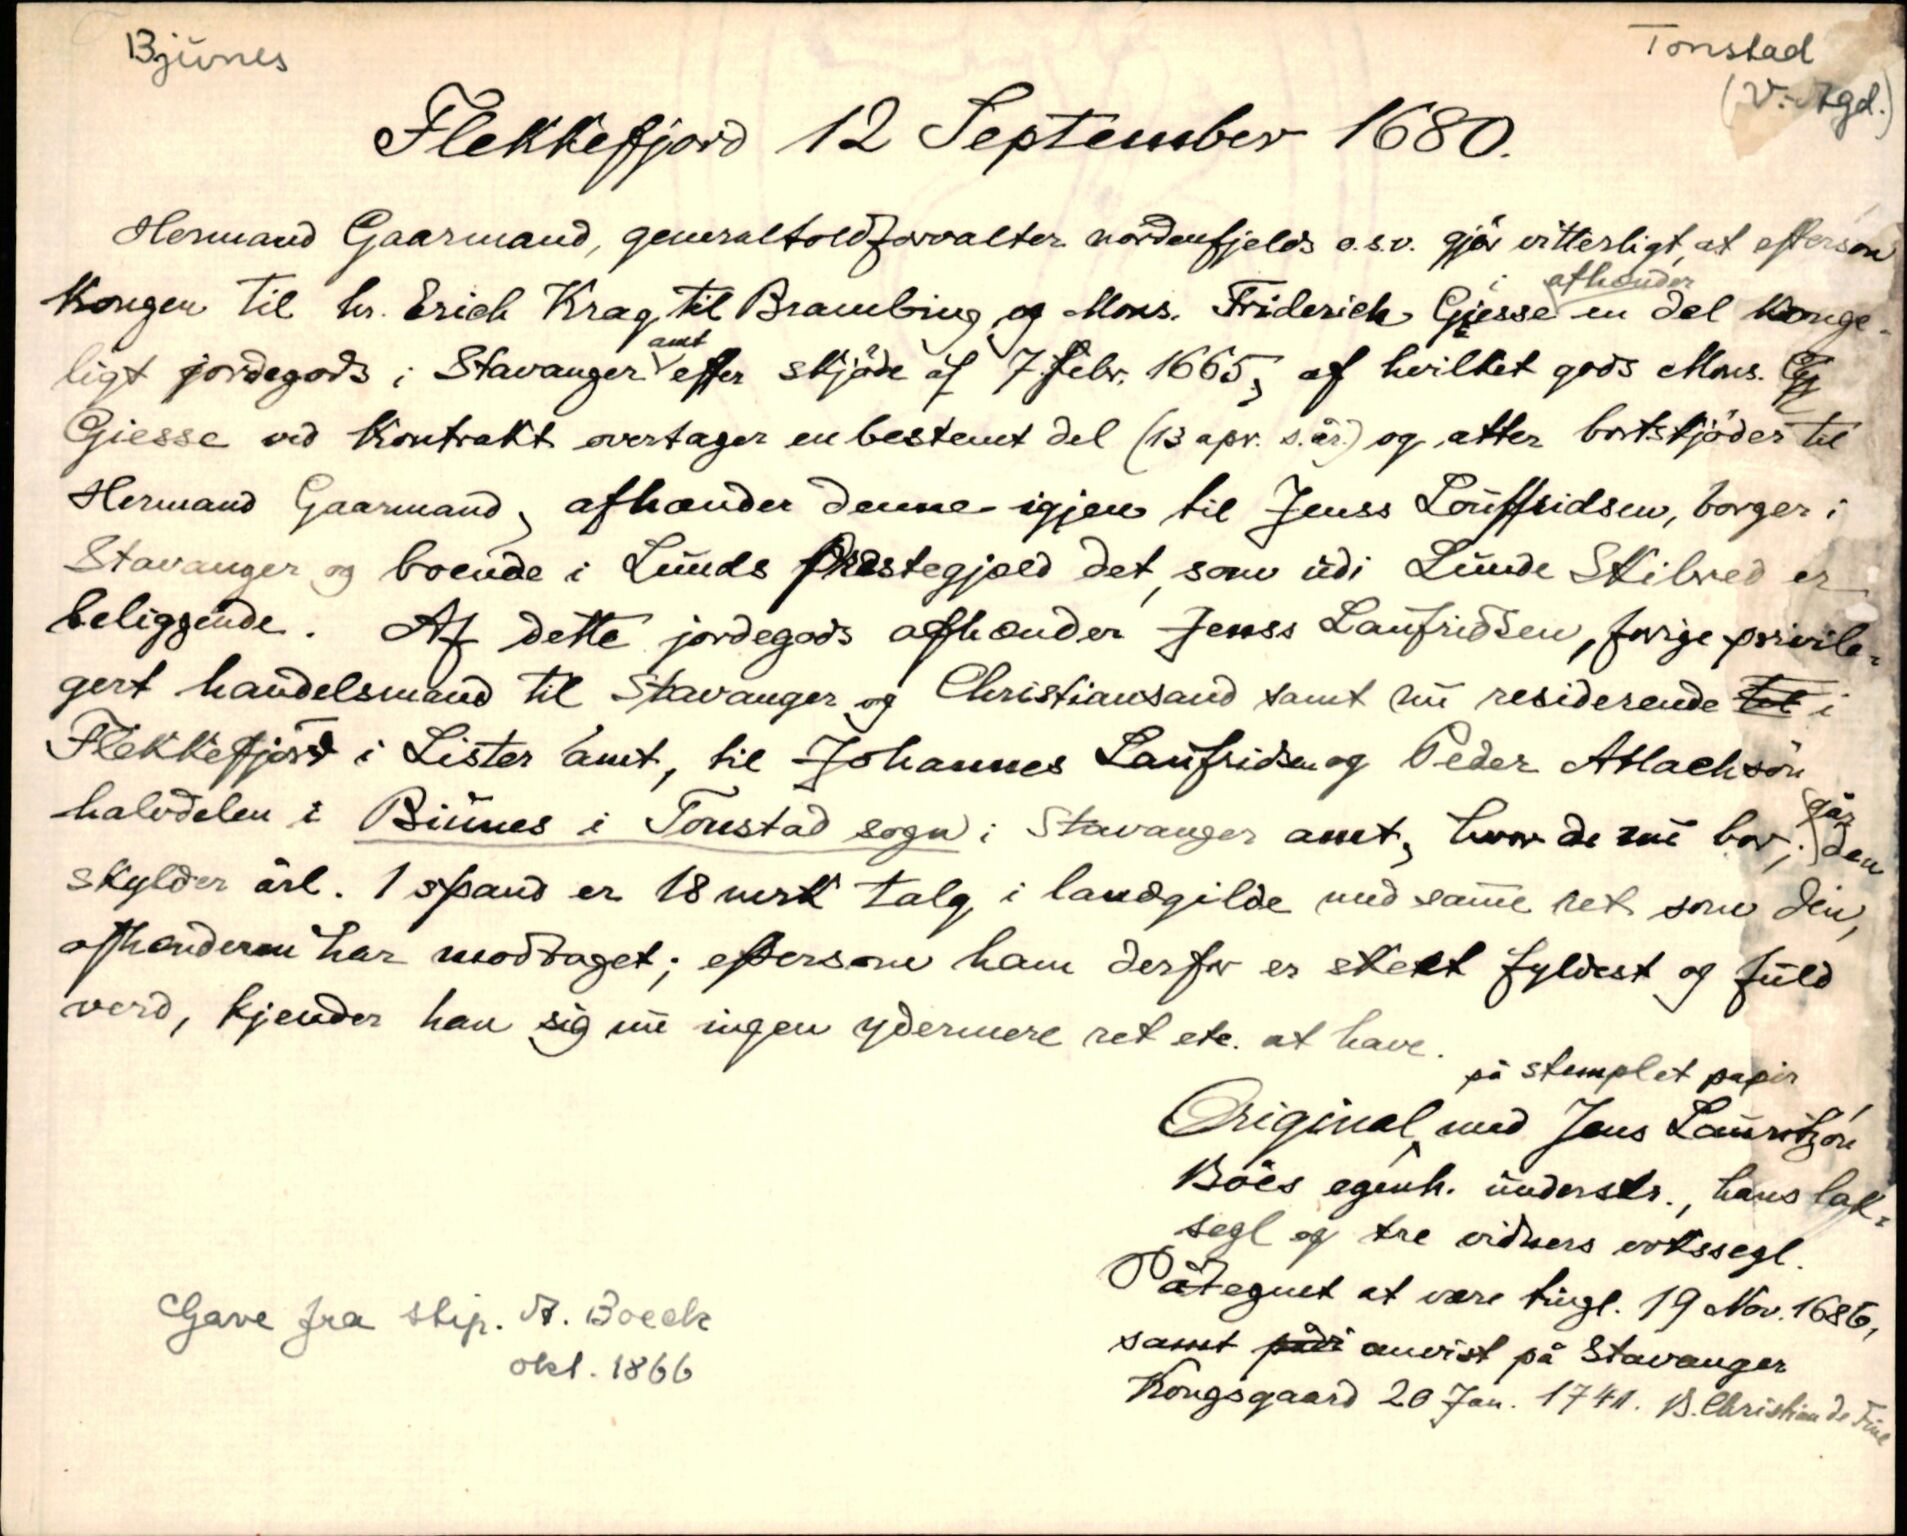 Bjünes
Tonstad
(V.-Agd.)
Flekkefjord 12 September 1680.
Hermand Gaarmand, generaltoldforvalter nordenfjelds o.s.v. gjör vitterligt, at eftersom
Kongen til hr. Erich Krag til Brambing og Mons. Friderich Giesse afhænder en del konge-
ligt jordegods i Stavanger amt efter skjöde af 7 febr. 1665, af hvilket gods Mons.
Giesse ved Kontrakt overtager en bestemt del (13 apr. s. år.) og atter bortskjöder til
Hermand Gaarmand, afhænder denne igjen til Jenss Louffridsen, borger i
Stavanger og boende i Lunds Præstegjæld det, som udi Lunde Skibred er
beliggende. Af dette jordegods afhænder Jenss Laufridsen, forige privile-
gert handelsmand til Stavanger og Christiansand samt nu residerende til i
Flekkefjord i Lister amt, til Johannes Laufridsen og Peder Atlachsön
halvdelen i Biünes i Tonstad sogn i Stavanger amt, hvor de nu bor; går den
skylder årl. 1 spand er 18 mrk talg i landgilde med samme ret som den,
afhænderen har modtaget; eftersom ham derfor er skeet fyldest og fuld
verd, kjender han sig nu ingen ydermere ret etc. at have.
på stemplet papir
Original, med Jens Lauritzön
Böes egenh. understr., hans lak-
segl og tre vidners vokssegl.
Påtegnet at være tingl. 19 Nov. 1686,
samt anvist på Stavanger
Kongsgaard 20 Jan. 1741. B. Christian de Fine
Gave fra stip. A. Boeck
okt. 1866